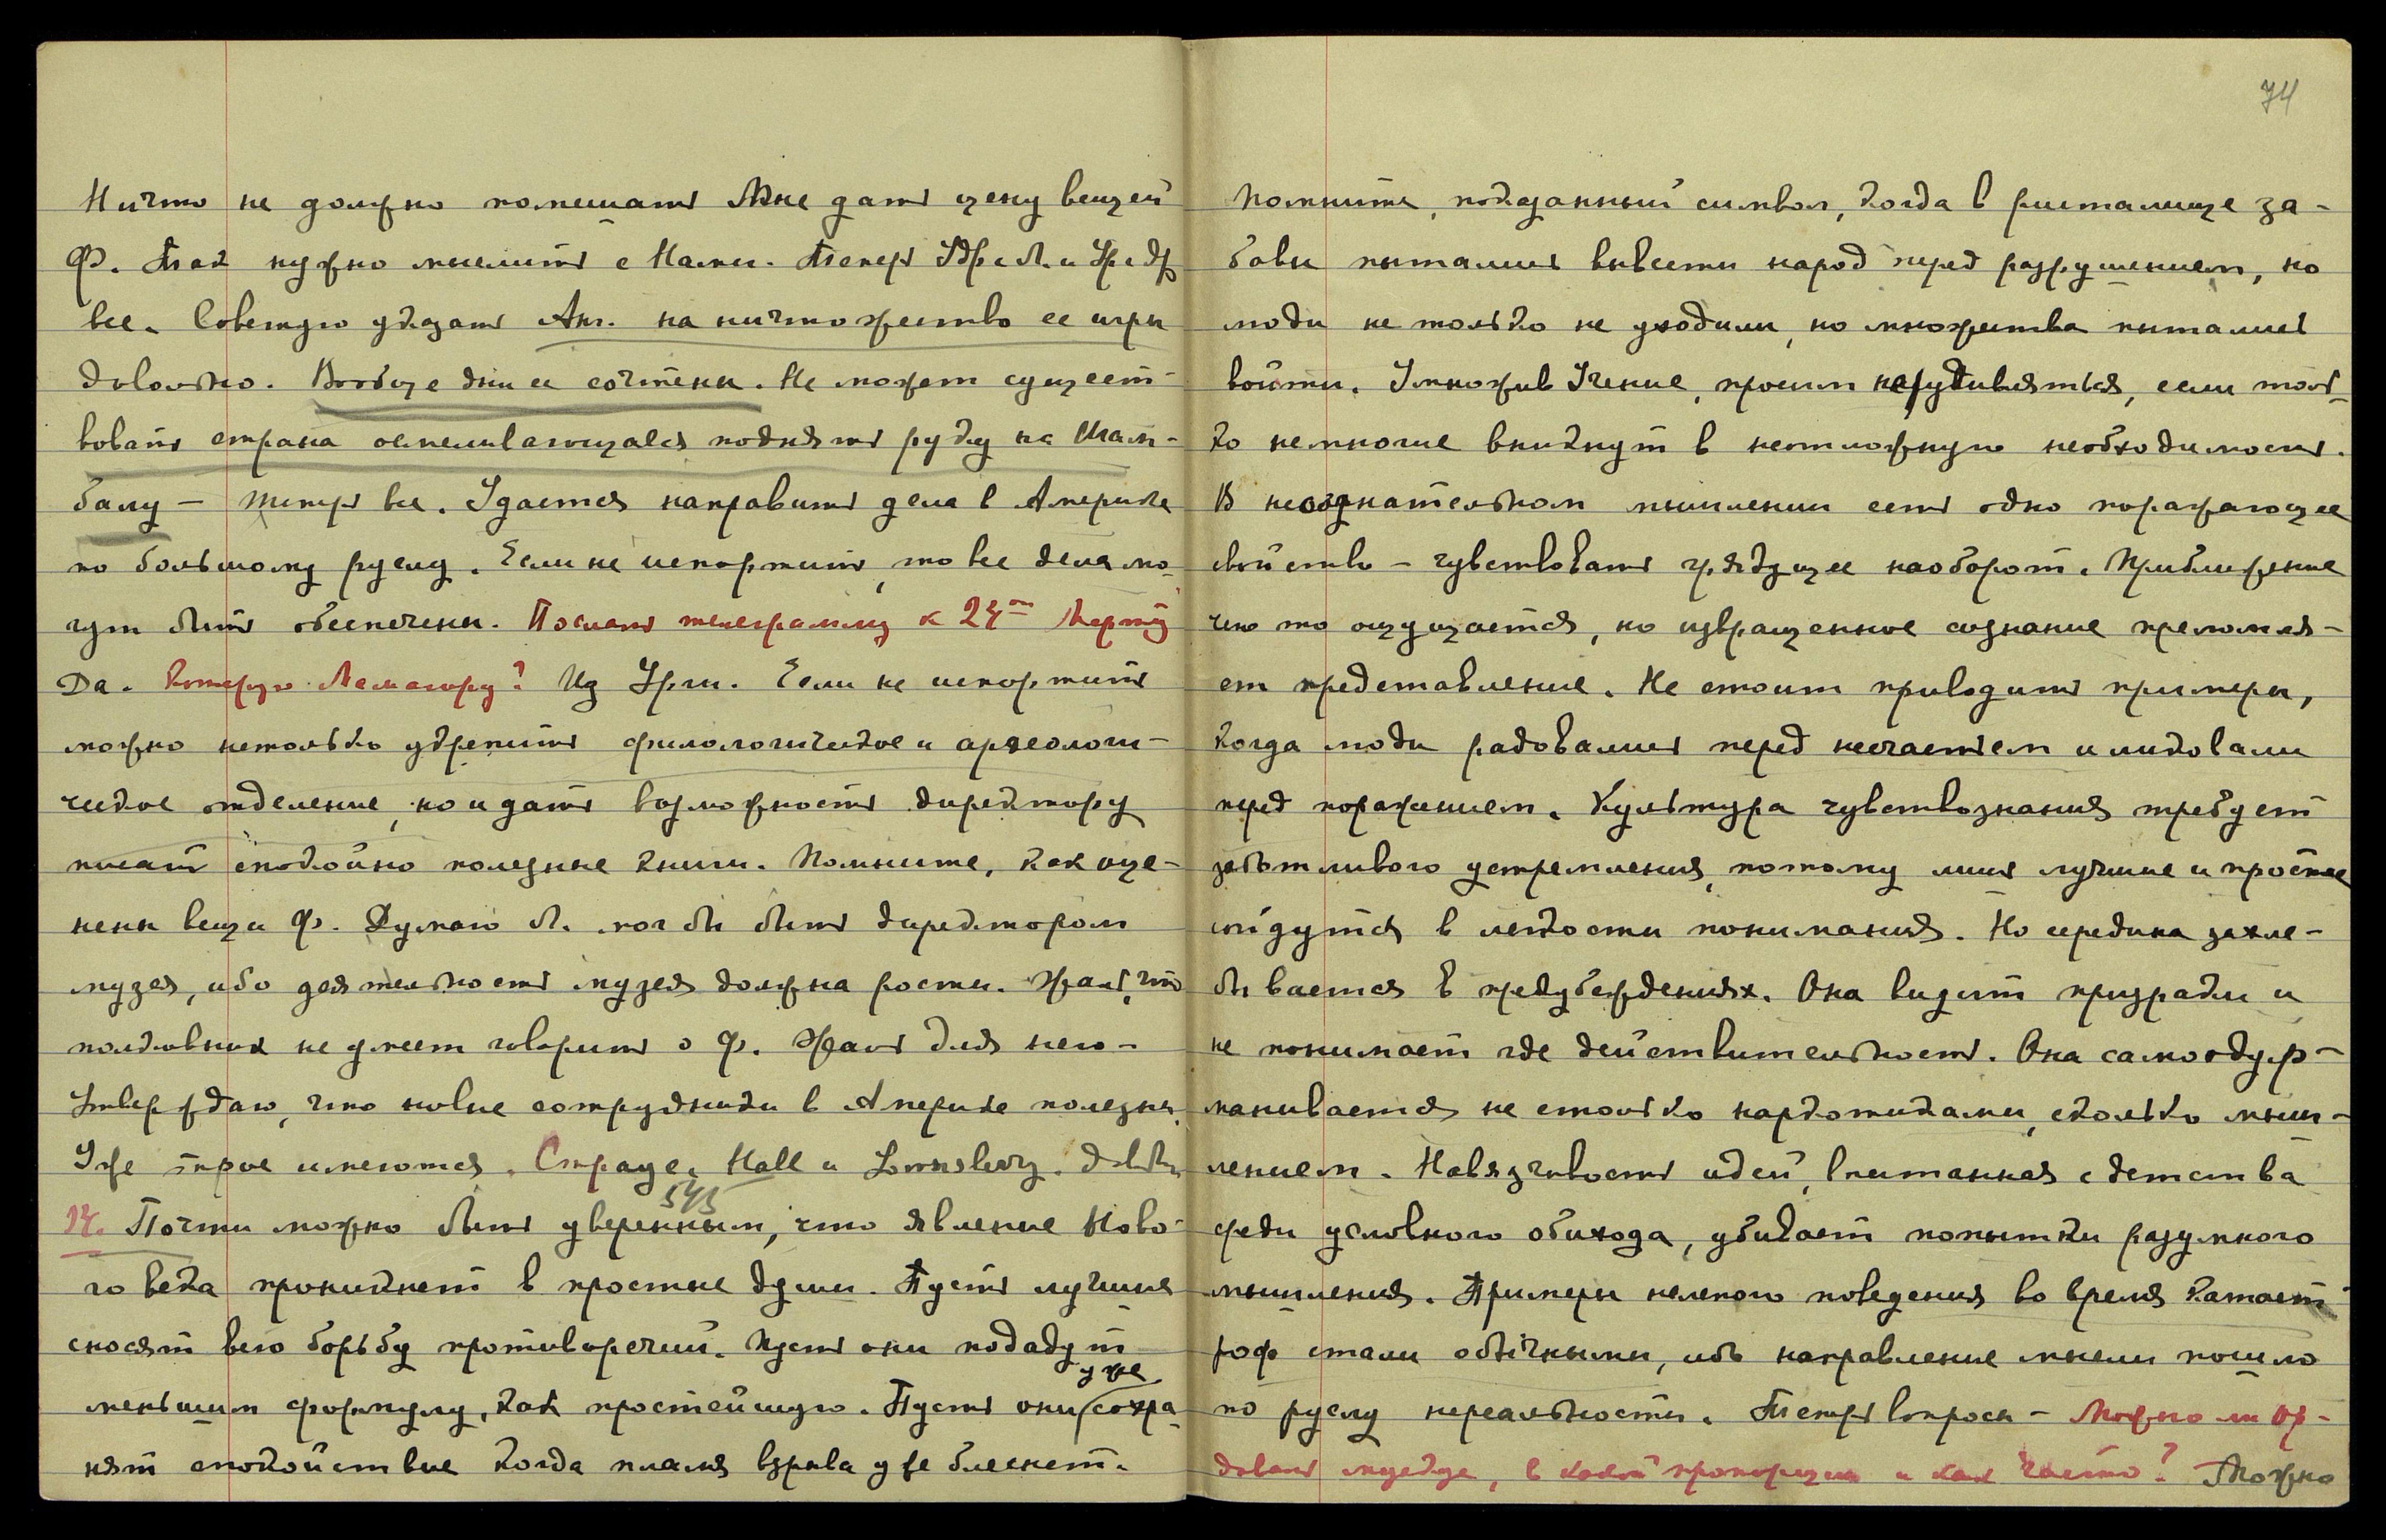 74
Ничто не должно помешать Мне дать цену вещей
Ф. Так нужно мыслить с Нами. Теперь
все. Советую указать Анг. на ничтожество ее игры
довольно. Вообще дни ее сочтены. Не может сущест-
вовать страна осмеливающаяся поднять руку на Шам-
балу – теперь все. Удается направить дела в Америке
по большому руслу. Если не испортить, то все дела мо-
гут быть обеспечены. Послать телеграмму к 24му Марту
Да. Которую Ламагору? Из Урги. Если не испортить
можно нетолько укрепить филологическое и археологи-
ческое отделение, но и дать возможность директору
писать спокойно полезные книги. Помните, как оце-
нены вещи Ф. Думаю Л. мог бы быть директором
музея, ибо деятельность музея должна расти. Жаль, что
полковник не умеет говорить о Ф. Жаль для него –
Утверждаю, что новые сотрудники в Америке полезны.
Уже трое имеются. Hall и
543
14. Почти можно быть уверенным, что явление Ново-
го века проникнет в простые души. Пусть лучшие
сносят всю борьбу противоречий. Пусть они подадут
меньшим формулу, как простейшую. Пусть они уже сохра-
нят спокойствие когда пламя взрыва уже блеснет.
Помните, показанный символ, когда в ристалище за-
бавы пытались вывести народ перед разрушением, но
люди не только не уходили, но множества пытались
войти. Умножив Учение, просим не удивляться, если толь-
ко немногие вникнут в неотложную необходимость.
В несознательном мышлении есть одно поражающее
свойство – чувствовать грядущее наоборот. Приближение
чего то ощущается, но извращенное сознание преломля-
ет представление. Не стоит приводить примеры,
когда люди радовались перед несчастьем и ликовали
перед поражением. Культура чувствознания требует
заботливого устремления, потому лишь лучшие и простые
сойдутся в легкости понимания. Но середина захле-
бывается в предубеждениях. Она видит призраки и
не понимает где действительность. Она самоодур-
манивается не столько наркотиками, сколько мыш-
лением. Навязчивость идей, впитанная с детства
среди условного обихода, убивает попытки разумного
мышления. Примеры нелепого поведения во время катаст-
роф стали обычными, ибо направление мысли пошло
по руслу нереальности. Теперь вопросы – Можно ли
в какой пропорции и как часто? Можно